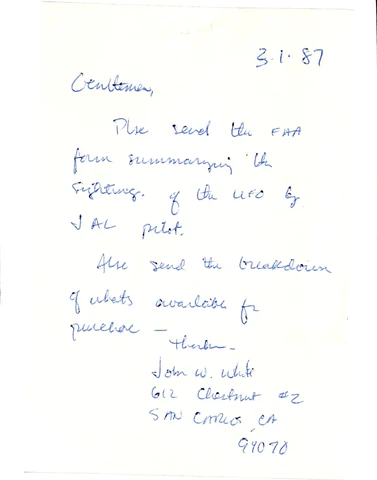 3.1.87
Gentlemen,
Plse send the FAA
form summarizing the
sightings. of the UFO by
JAL pilot.
Also send the breakdown
of whats available for
purchase —
Thanks —
John W. White
612 Chestnut #2
SAN CARLOS, CA
94070